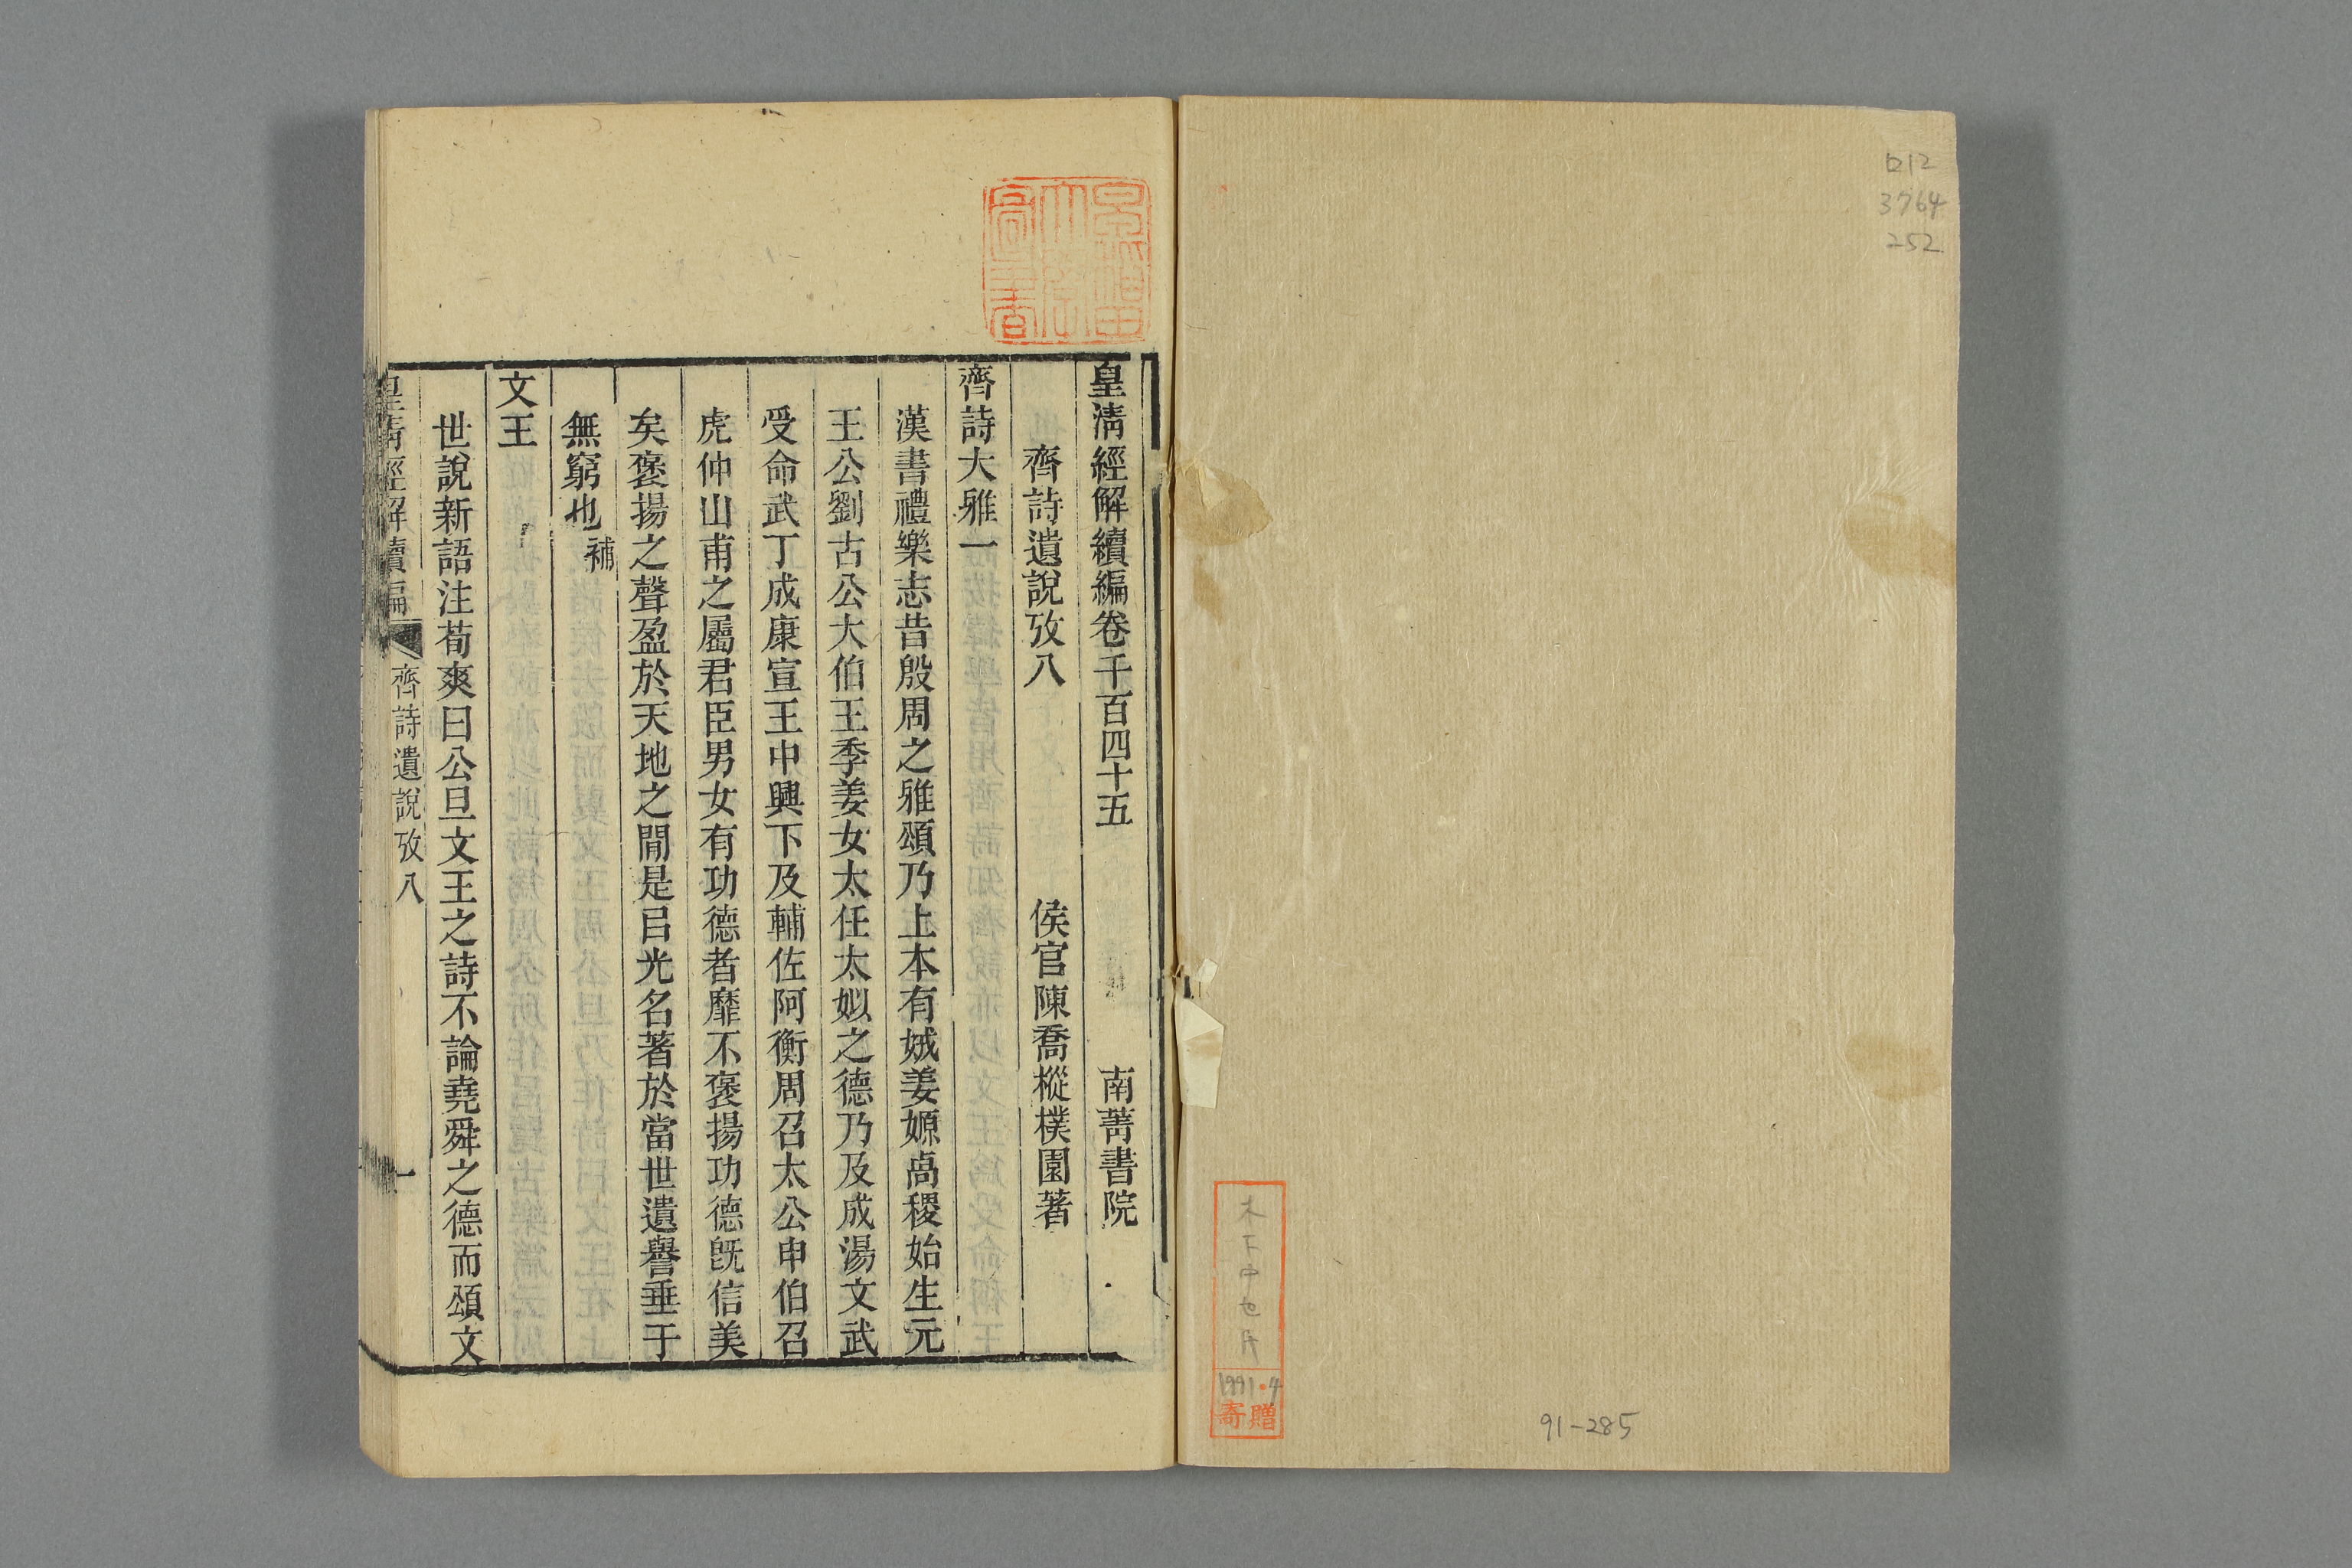 ロ12
3764
252
1991・4
寄贈
91-285
皇清經解續編卷千百四十五 南菁書院
齊詩遺說攷八 侯官陳喬樅樸園著
齊詩大雅一
漢書禮樂志昔殷周之雅頌乃上本有娀姜嫄卨稷始生元
王公劉古公大伯王季姜女太任太姒之德乃及成湯文武
受命武丁成康宣王中興下及輔佐阿衡周召太公申伯召
虎仲山甫之屬君臣男女有功德者靡不褒揚功德旣信美
矣褒揚之聲盈於天地之間是㠯光名著於當世遺譽垂于
無窮也補
文王
世說新語注荀爽曰公旦文王之詩不論堯舜之德而頌文
皇清經解續編 齊詩遺說攷八 一